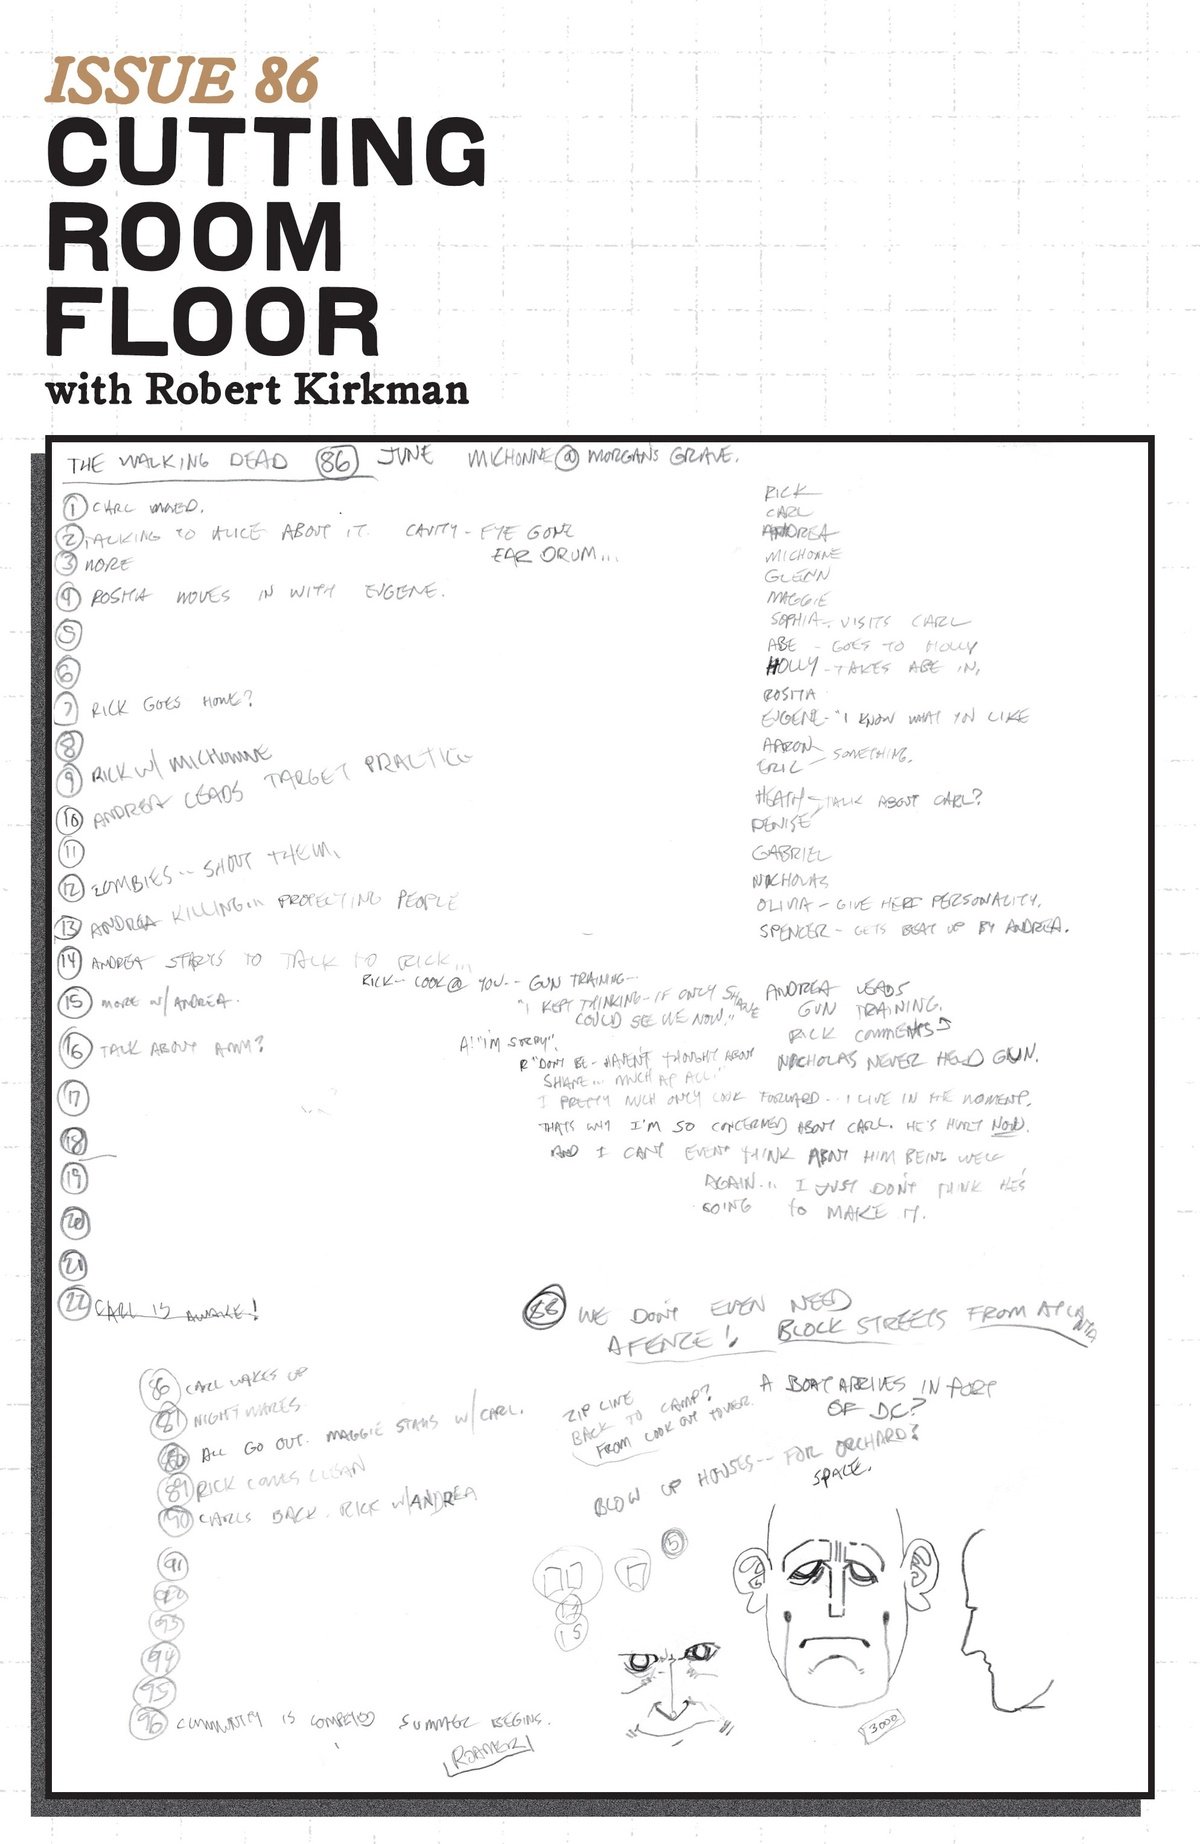 ISSUE 86
CUTTING
ROOM
FLOOR
with Robert Kirkman
THE WALKING DEAD 86 JUNE MICHONNE @ MORGAN'S GRAVE.
1 CARL
2 TALKING TO ALICE ABOUT IT. CAVITY - EYE GONE
EAR DRUM...
3 MORE
4 ROSITA MOVES IN WITH EUGENE.
5
6
7 RICK GOES HOME?
8
9 RICK W/ MICHONNE
10 ANDREA LEADS TARGET PRACTICE
11
12 ZOMBIES.. SHOOT THEM.
13 ANDREA KILLING... PROTECTING PEOPLE
14 ANDREA STARTS TO TALK TO RICK...
15 MORE W/ ANDREA.
16 TALK ABOUT AMY?
17
18
19
20
21
22 CARL IS AWAKE!
RICK
CARL
ANDREA
MICHONNE
GLENN
MAGGIE
SOPHIA - VISITS CARL
ABE - GOES TO HOLLY
HOLLY - TAKES ABE IN.
ROSITA
EUGENE - "I KNOW WHAT YOU LIKE
AARON
ERIC - SOMETHING.
HEATH - TALK ABOUT CARL?
DENISE
GABRIEL
NICHOLAS
OLIVIA - GIVE HERE PERSONALITY.
SPENCER - GETS BEAT UP BY ANDREA.
RICK-- LOOK @ YOU-- GUN TRAINING--
"I KEPT THINKING - IF ONLY SHANE
COULD SEE WE NOW."
A: "I'M SORRY".
R "DON'T BE - HAVEN'T THOUGHT ABOUT
SHANE... MUCH AT ALL."
I PRETTY MUCH ONLY LOOK FORWARD-- I LIVE IN THE MOMENT.
THATS WHY I'M SO CONCERNED ABOUT CARL. HE'S HURT NOW.
AND I CAN'T EVENT THINK ABOUT HIM BEING WELL
AGAIN... I JUST DON'T THINK HE'S
GOING TO MAKE IT.
ANDREA LEADS
GUN TRAINING.
RICK COMMENTS
NICHOLAS NEVER HELD GUN.
88 WE DON'T EVEN NEED
A FENZE! BLOCK STREETS FROM ATLANTA
86 CARL WAKES UP
87 NIGHTMARES
88 ALL GO OUT. MAGGIE STAYS W/ CARL.
89 RICK COMES CLEAN
90 CARLS BACK. RICK W/ ANDREA
91
92
93
94
95
96 COMMUNITY IS COMPLETED SUMMER BEGINS.
ROAMER
ZIP LINE
BACK TO CAMP?
FROM LOOK OUT TOWER.
A BOAT ARRIVES IN PORT
OF DC?
BLOW UP HOUSES-- FOR ORCHARD?
SPACE.
5
15
3000